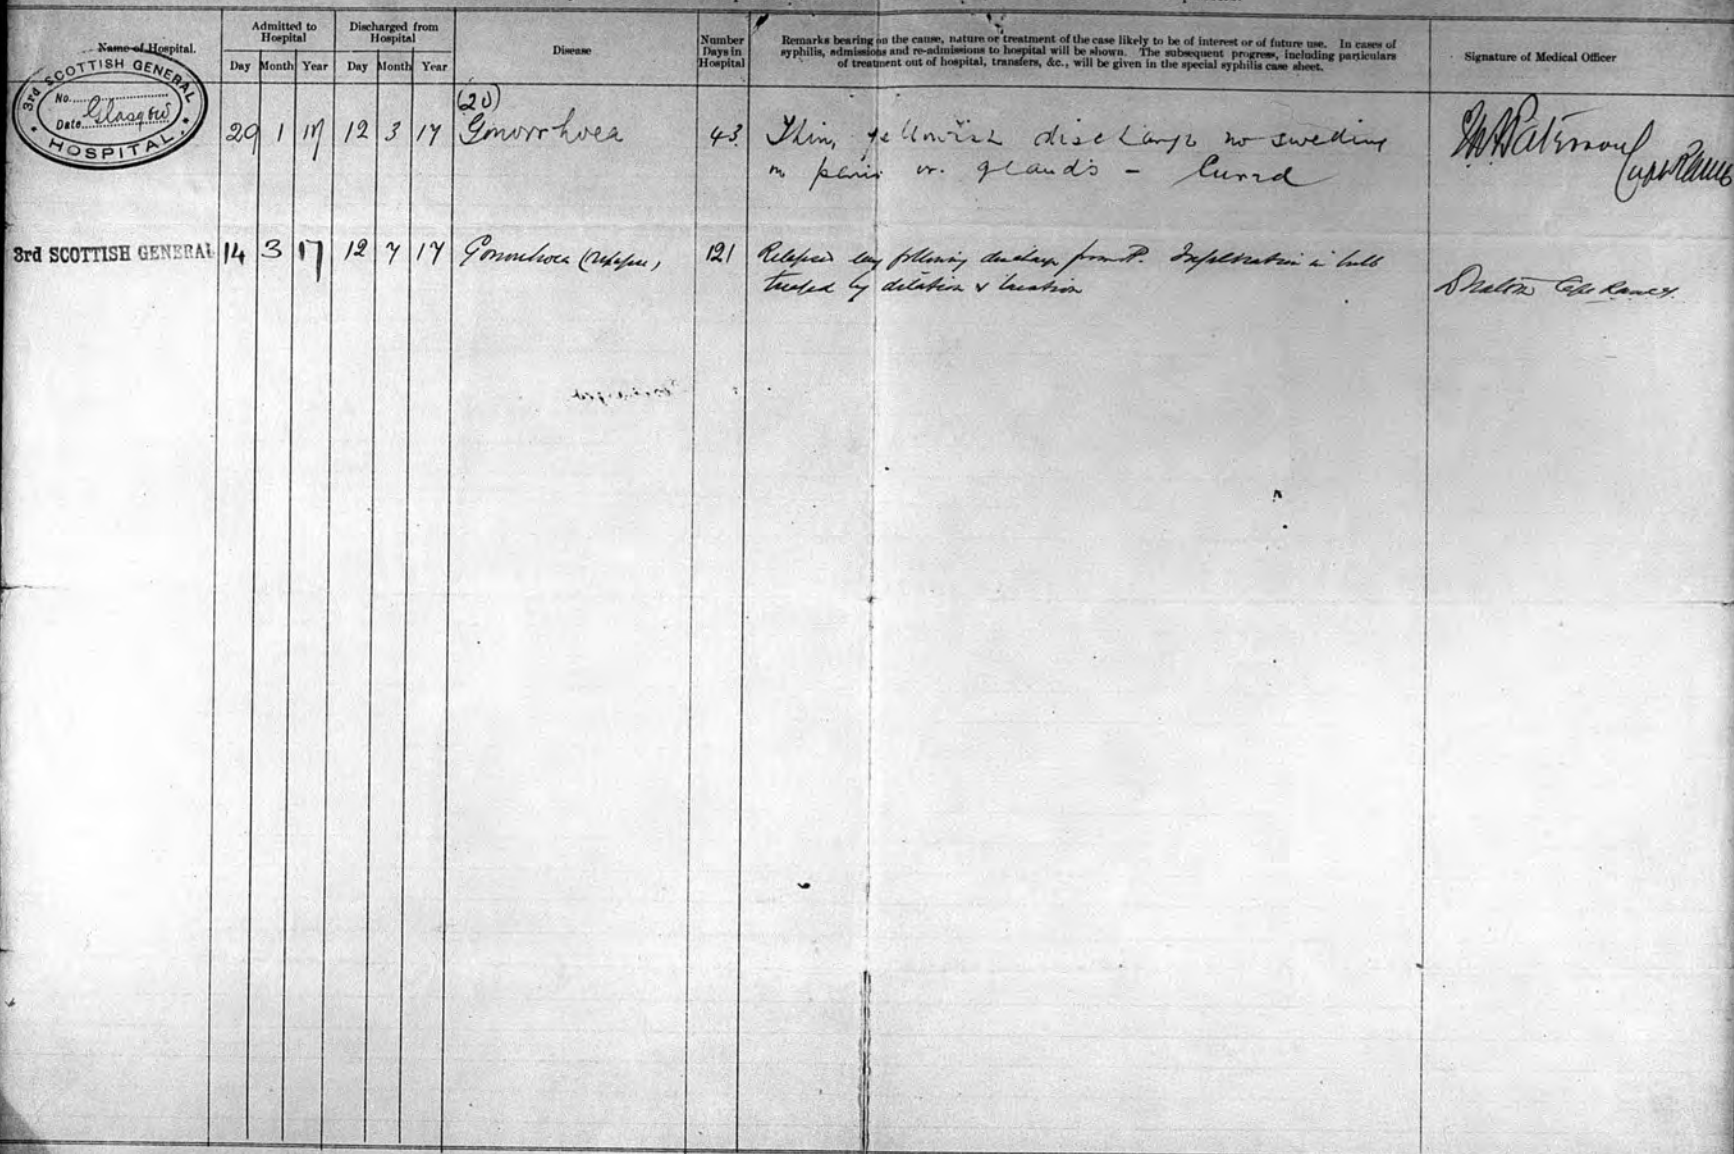 Name of Hospital.
Admitted to Hospital
Discharged from Hospital
Day Month Year Day Month Year
Disease
Number Days in Hospital
Remarks bearing on the cause, nature or treatment of the case likely to be of interest or of future use. In cases of
syphilis, admissions and re-admissions to hospital will be shown. The subsequent progress, including particulars
of treatment out of hospital, transfers, &c., will be given in the special syphilis case sheet.
Signature of Medical Officer
3rd SCOTTISH GENERAL HOSPITAL.
No.
Date Glasgow
(20)
29 1 17 12 3 17 Gonorrhoea 43 Thin, yellowish discharge no swelling
or glands - Cured
Paterson
3rd SCOTTISH GENERAL 14 3 17 12 7 17 Gonorrhoea (relapse) 121 Relapsed following discharge from Infiltration in bulb
treated by dilation &
Capt RAMC